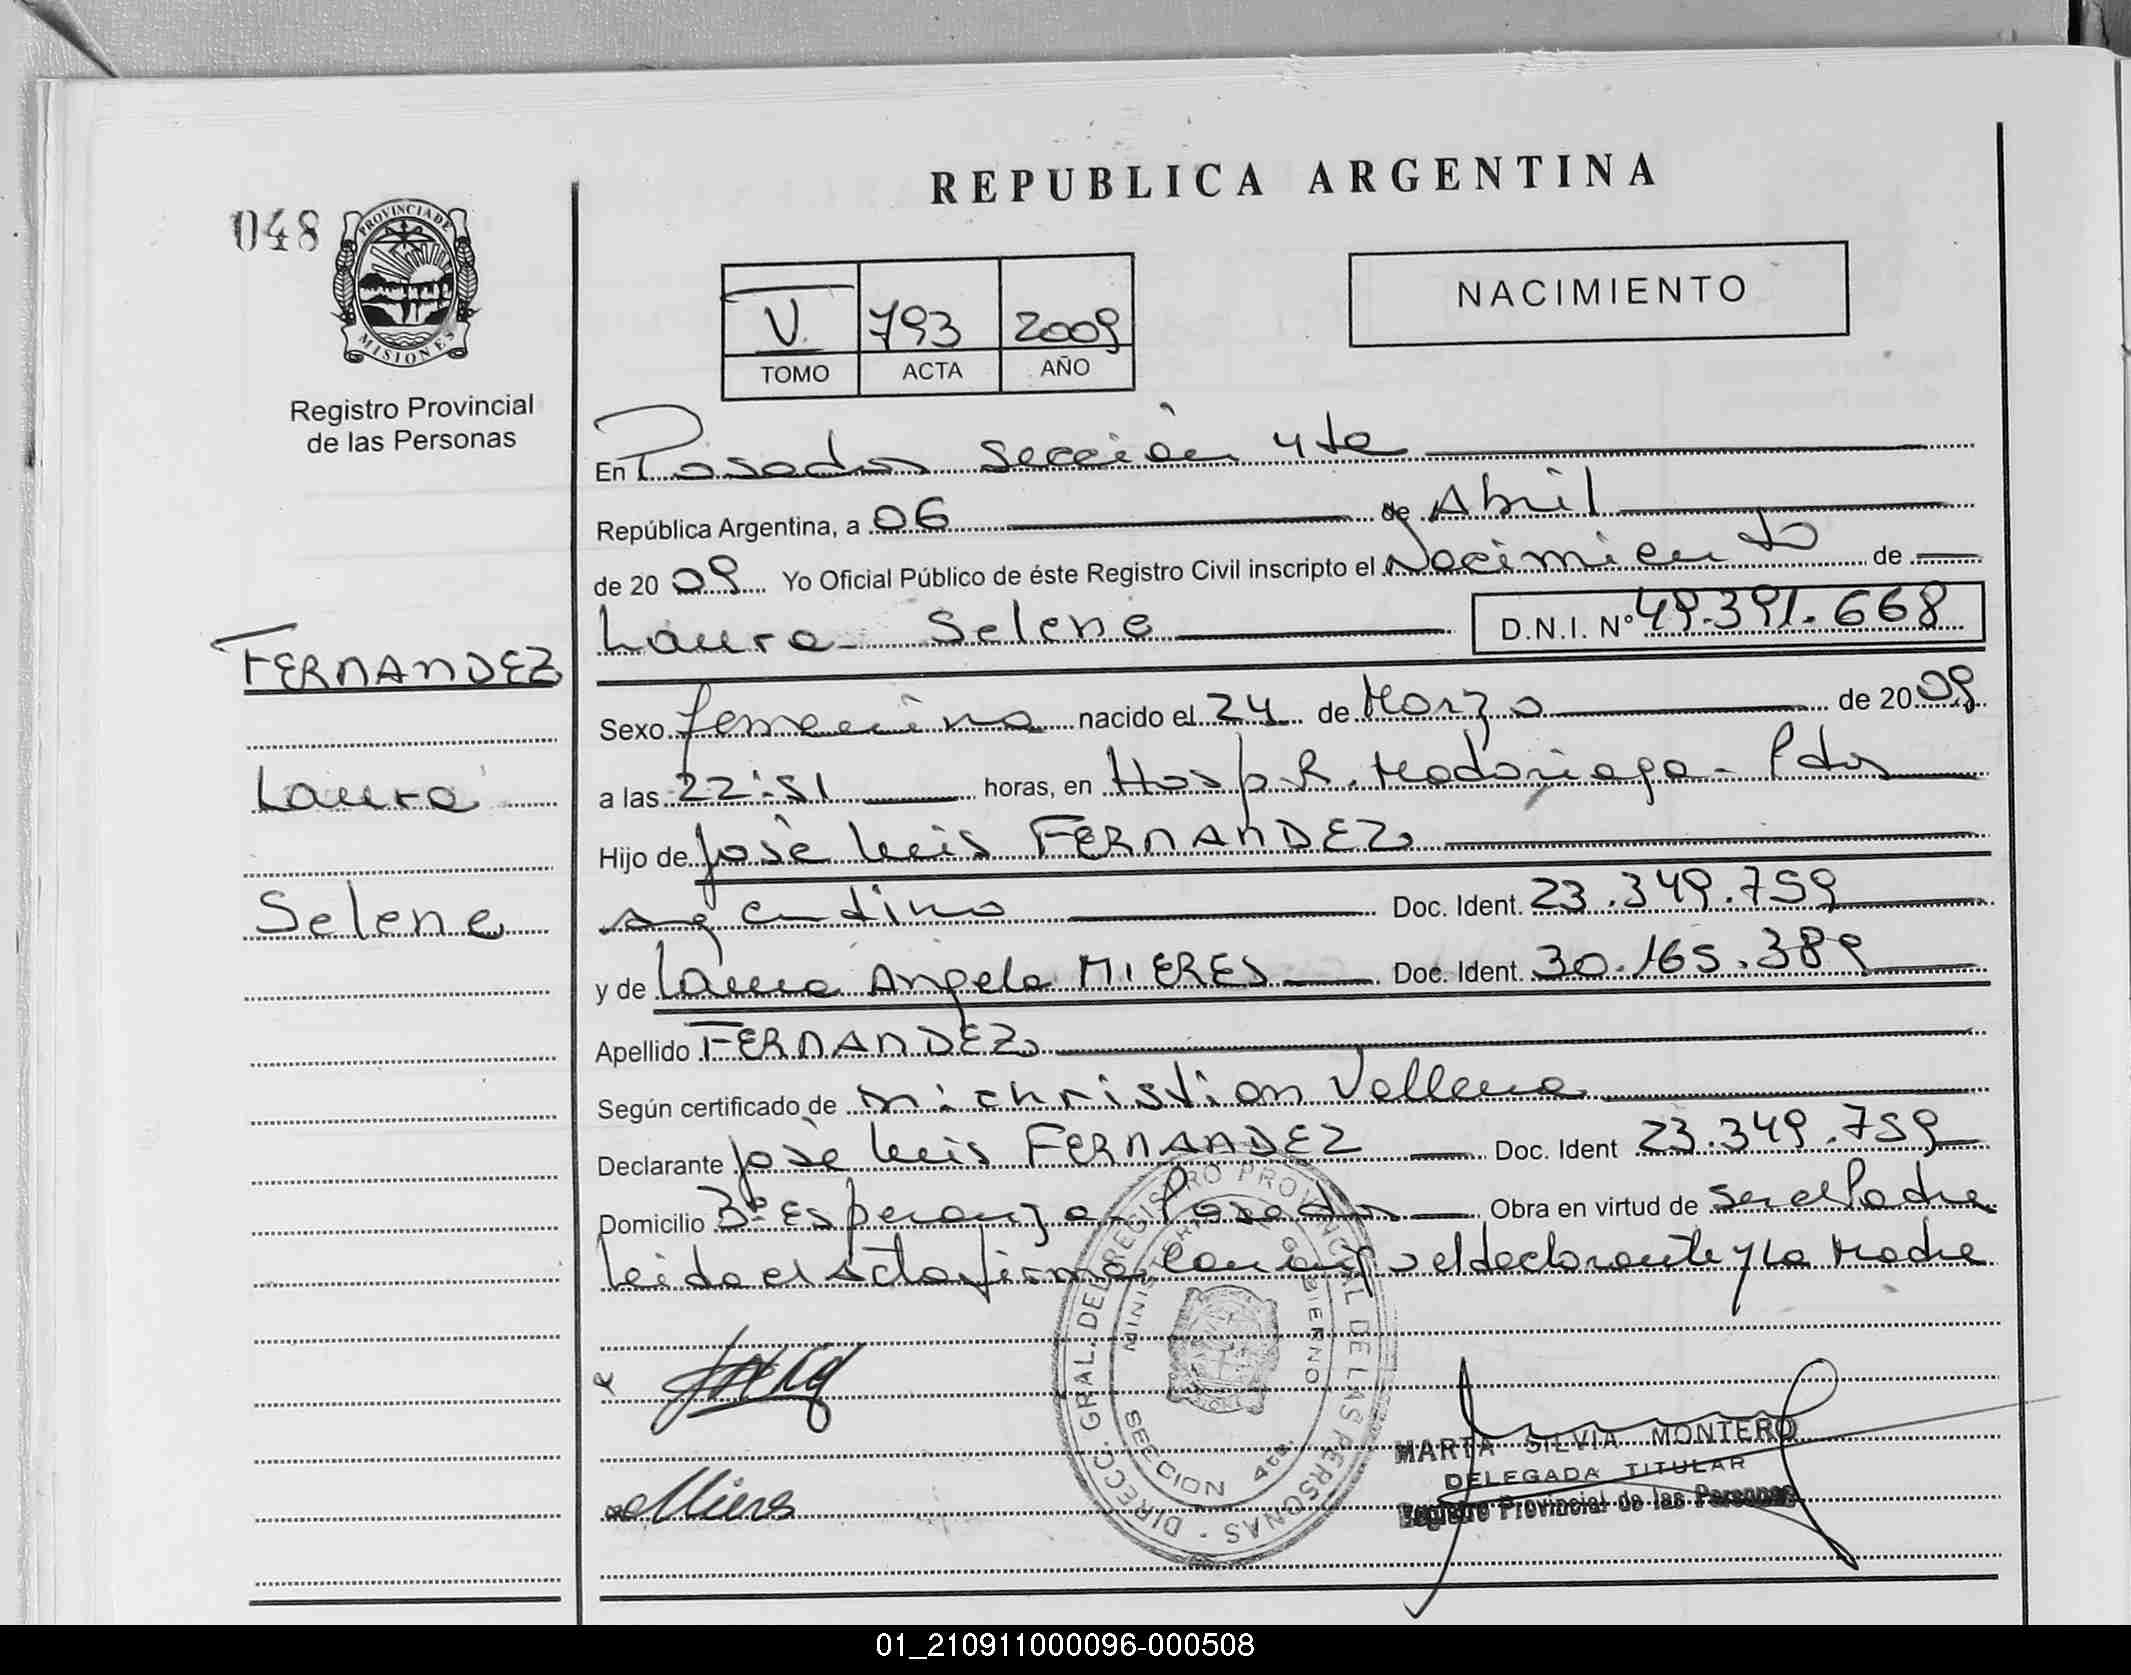 REPUBLICA ARGENTINA
048
PROVINCIA DE MISIONES
Registro Provincial
de las Personas
NACIMIENTO
V. 793 2009
TOMO ACTA AÑO
En Posadas Sección 4ta
República Argentina, a 06 de Abril
de 2009 Yo Oficial Público de éste Registro Civil inscripto el Nacimiento de
Laura Selene D.N.I. Nº 49.391.668
FERNANDEZ
Laura
Selene
Sexo femenino nacido el 24 de Marzo de 2009
a las 22:51 horas, en Hosp. R. Madariaga - Pdas
Hijo de José Luis FERNANDEZ
argentino Doc. Ident. 23.349.759
y de Laura Angela MIERES Doc. Ident. 30.165.389
Apellido FERNANDEZ
Según certificado de Christian
Declarante José Luis FERNANDEZ Doc. Ident 23.349.759
Domicilio Bº Esperanza - Posadas Obra en virtud de ser el Padre
Leida el Acta firma el declarante y La Madre
DIRECC. GRAL. DEL REGISTRO PROVINCIAL DE LAS PERSONAS -
MINISTERIO GOBIERNO
SECCION 4ta.
Mieres
MARTA SILVIA MONTERO
DELEGADA TITULAR
Registro Provincial de las Personas
01_210911000096-000508